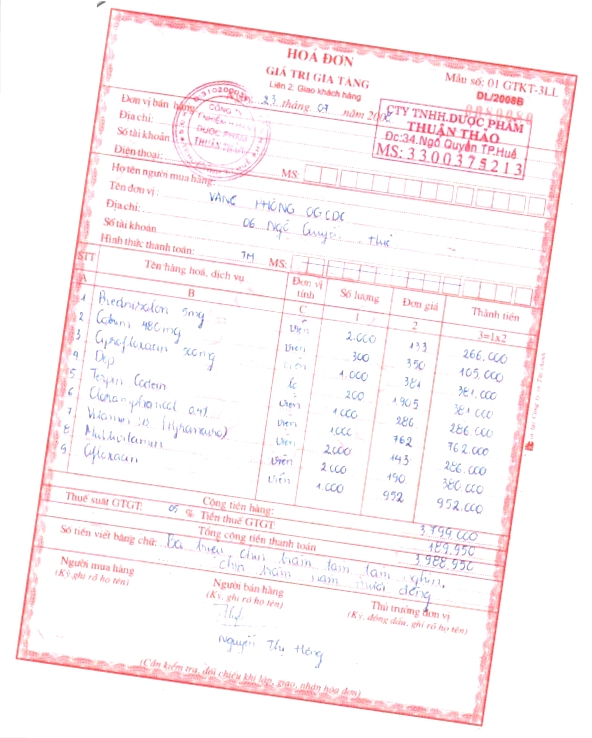 HOÁ ĐƠN
GIÁ TRỊ GIA TĂNG
Liên 2: Giao khách hàng
Mẫu số: 01 GTKT-3LL
DL/2008B
23 tháng 07 năm 200
Đơn vị bán hàng:
Địa chỉ:
Số tài khoản:
Điện thoại: MS:
DƯỢC PHẨM
THUẬN THẢO
CTY TNHH.DƯỢC PHẨM
THUẬN THẢO
Đc:34.Ngô Quyền TP.Huế
MS: 3300375213
Họ tên người mua hàng:
Tên đơn vị: VĂNG PHÒNG OGCDC
Địa chỉ: 06 Ngô Quyền Huế
Số tài khoản
Hình thức thanh toán: TM MS:
STT Tên hàng hoá, dịch vụ Đơn vị tính Số lượng Đơn giá Thành tiền
A B C 1 2 3=1x2
1 Prednisolon 5mg viên 2.000 133 266.000
2 Cotrim 480mg viên 300 350 105.000
3 Ciprofloxacin 500mg viên 1.000 381 381.000
4 Dep lọ 200 1905 381.000
5 Terpin Codein viên 1000 286 286.000
6 Cloramphenical 0.4% 1000 762 762.000
7 Vitamin viên 2000 143 286.000
8 Multivitamin viên 2000 190 380.000
9 Ofloxacin viên 1.000 952 952.000
Cộng tiền hàng: 3.799.000
Thuế suất GTGT: 05 % Tiền thuế GTGT: 189.950
Tổng cộng tiền thanh toán 3.988.950
Số tiền viết bằng chữ: Ba triệu, chín trăm tám tám nghìn,
chín trăm năm mươi đồng
Người mua hàng Người bán hàng Thủ trưởng đơn vị
(Ký, ghi rõ họ tên) (Ký, ghi rõ họ tên) (Ký, đóng dấu, ghi rõ họ tên)
Nguyễn Thị Hồng
(Cần kiểm tra, đối chiếu khi lập, giao, nhận hóa đơn)